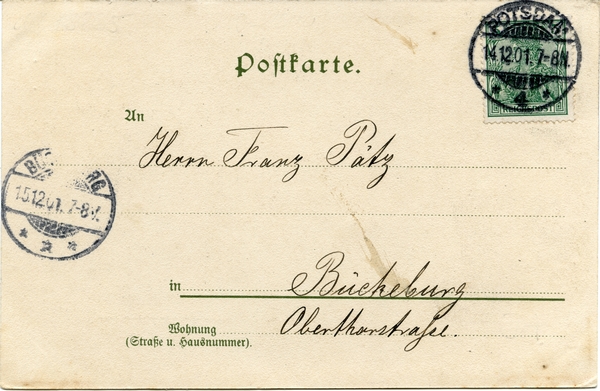 POTSDAM
14.12.01.7-8N.
* 4 *
Postkarte.
An
Herrn Franz Pätz
BÜCKEBURG
15.12.01.7-8V.
* 2 *
in Bückeburg
Oberthorstraße.
Wohnung
(Straße u. Hausnummer).